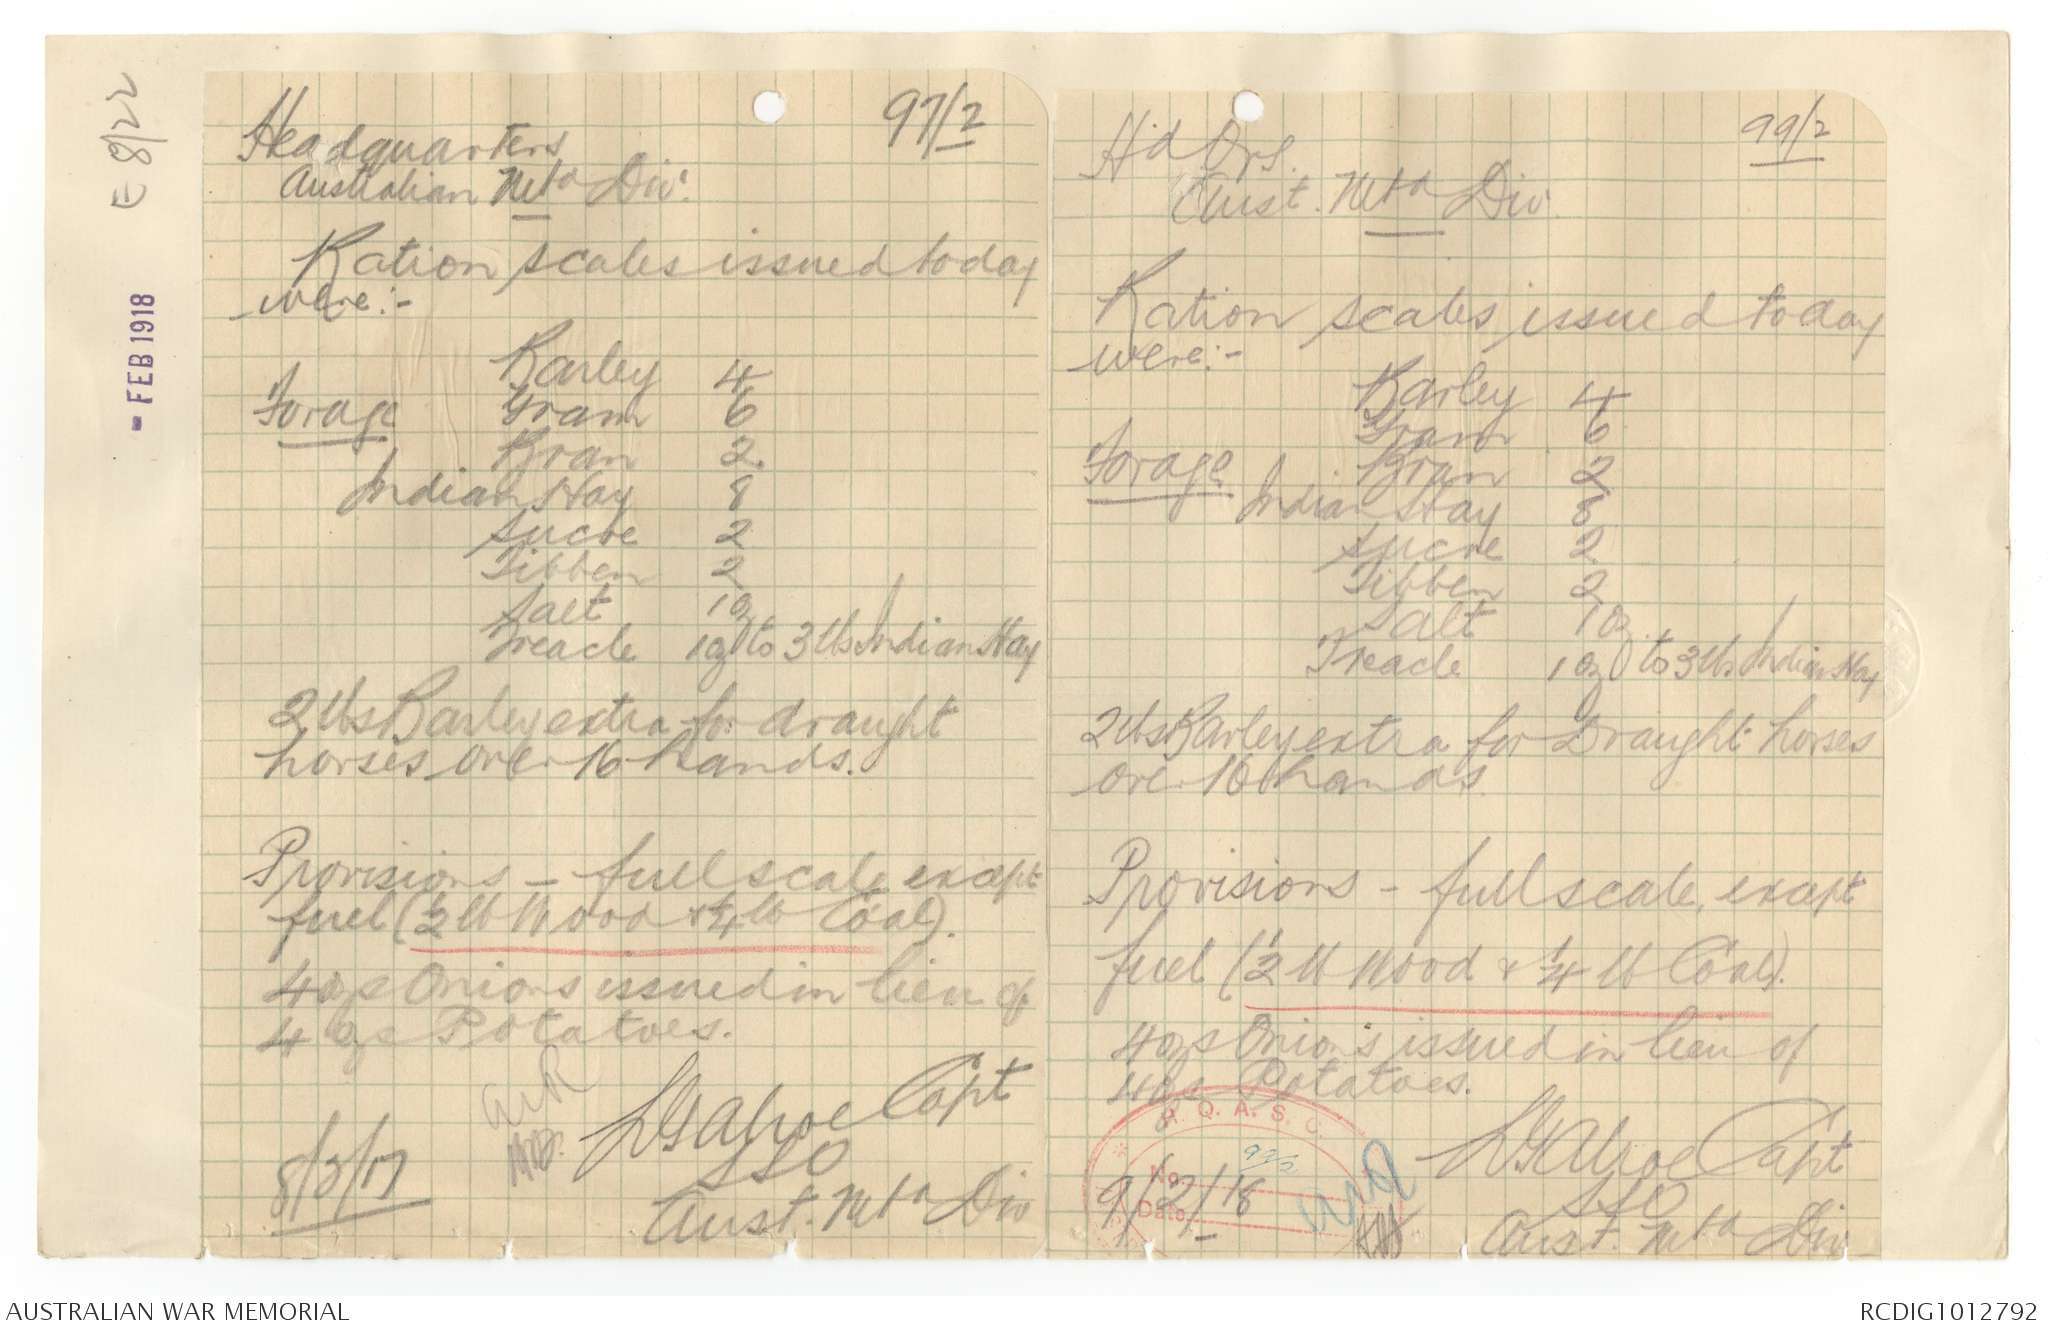 E 8/22
- FEB 1918
97/2
Headquarters
Australian Mtd Div.
Ration scales issued today
were:-
Barley 4
Forage Gram 6
Bran 2
Indian Hay 8
Sucre 2
Tibben 2
Salt 1oz
Treacle 1oz to 3 lbs Indian Hay
2 lbs Barley extra for draught
horses over 16 hands.
Provisions - full scale except
fuel (1/2 lb Wood & 1/4 lb Coal).
4 ozs Onions issued in lieu of
4 ozs Potatoes.
Capt
SSO
8/2/17
Aust. Mtd Div
99/2
Hd Qrs.
Aust. Mtd Div.
Ration scales issued today
were:-
Barley 4
Gram 6
Forage Bran 2
Indian Hay 8
Sucre 2
Tibben 2
Salt 1 oz
Treacle 1 oz to 3 lbs Indian Hay
2 lbs Barley extra for Draught horses
over 16 hands.
Provisions - full scale, except
fuel (1/2 lb Wood & 1/4 lb Coal).
4 ozs Onions issued in lieu of
4 ozs Potatoes.
H.Q. A. S. C.
Capt
No. 93/2
SSO
9/2/18
Date
Aust. Mtd Div
AUSTRALIAN WAR MEMORIAL
RCDIG1012792